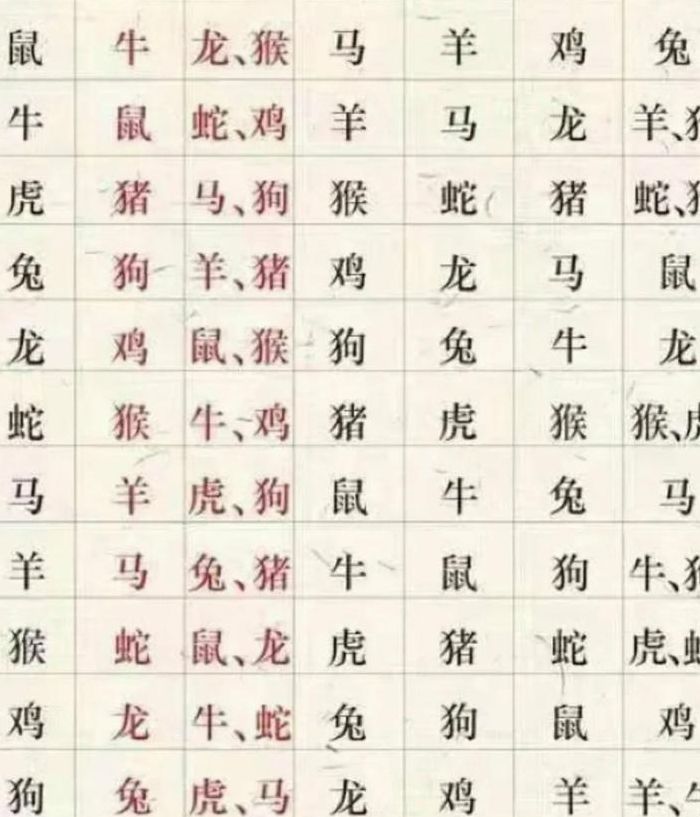 鼠 牛 龙、猴 马 羊 鸡 兔
牛 鼠 蛇、鸡 羊 马 龙 羊、
虎 猪 马、狗 猴 蛇 猪 蛇、
兔 狗 羊、猪 鸡 龙 马 鼠
龙 鸡 鼠、猴 狗 兔 牛 龙
蛇 猴 牛、鸡 猪 虎 猴 猴、虎
马 羊 虎、狗 鼠 牛 兔 马
羊 马 兔、猪 牛 鼠 狗 牛、
猴 蛇 鼠、龙 虎 猪 蛇 虎、蛇
鸡 龙 牛、蛇 兔 狗 鼠 鸡
狗 兔 虎、马 龙 鸡 羊 羊、牛